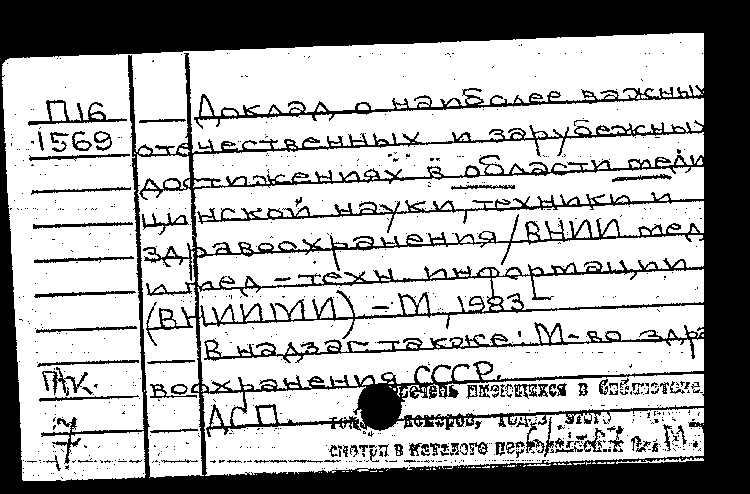 П16 Доклад о наиболее важных
1569 отечественных и зарубежных
достижениях в области меди
цинской науки, техники и
здравоохранения / ВНИИ мед
и мед – техн. информации
(ВНИИМИ) – М, 1983 –
В надзаг. также: М-во здра
воохранения СССР.
ДСП.
речень имеющихся в библиотеке
номеров, этого
смотри в каталоге